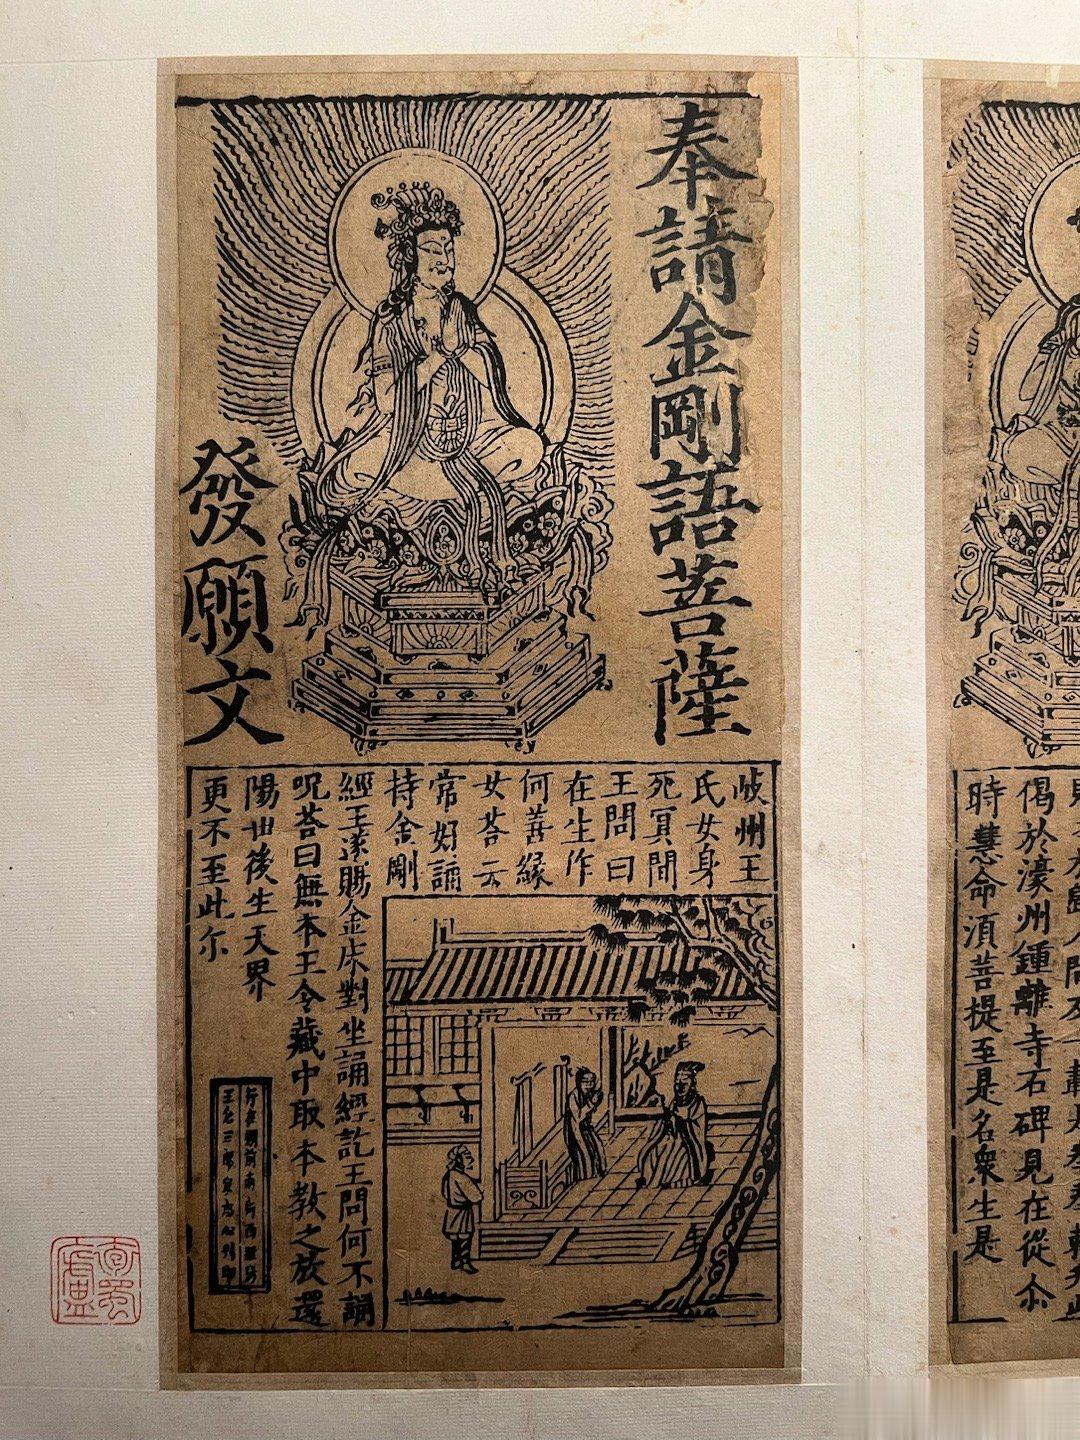 奉請金剛語菩薩
發願文
岐州王
氏女身
死冥間
王問曰
在生作
何善緣
女荅云
常好誦
持金剛
經王遂賜金床對坐誦經訖王問何不誦
呪荅曰無本王令藏中取本教之放還
陽世後生天界
更不至此尒
偈於濠州鍾離寺石碑見在從尒
時慧命須菩提至是名衆生是